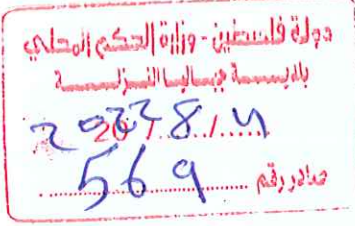 دولة فلسطين - وزارة الحكم المحلي
بلديـــة جباليا النـزلـــة
2022 / 8 /
صادر رقم ........ 569 ........